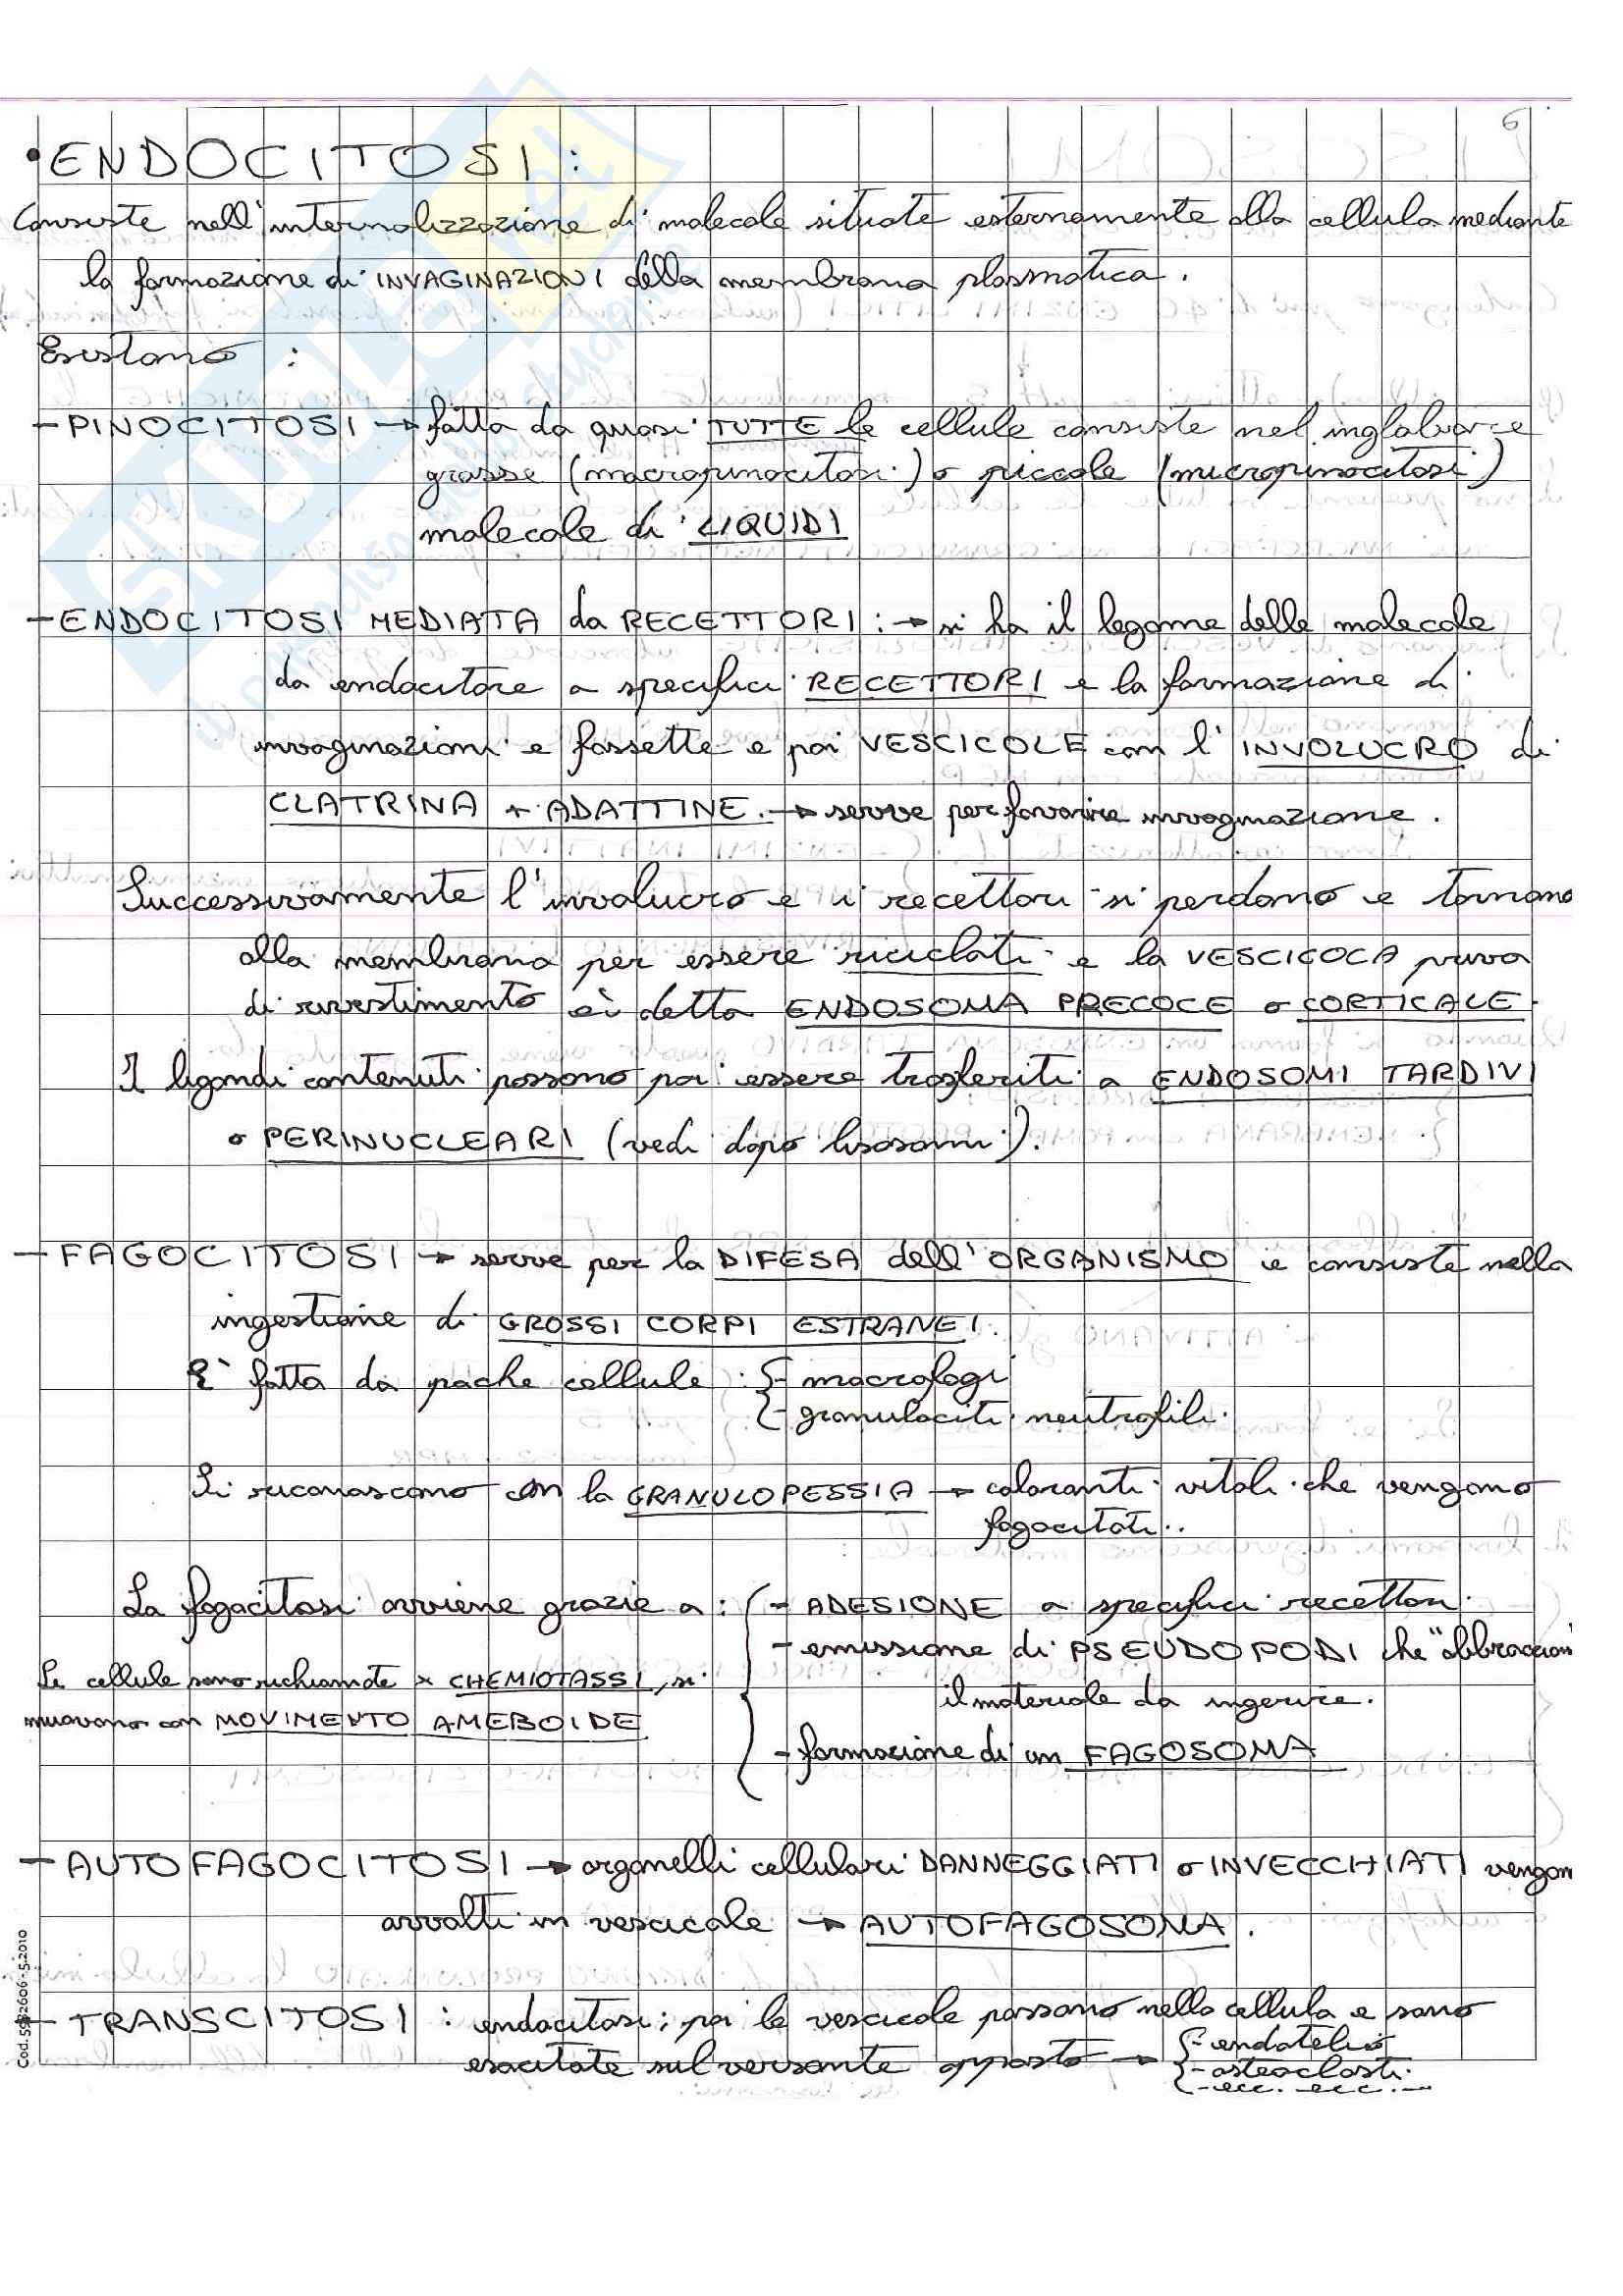 6
• ENDOCITOSI:
Consiste nell'internalizzazione di molecole situate esternamente alla cellula mediante
la formazione di INVAGINAZIONI della membrana plasmatica.
Esistono :
- PINOCITOSI → fatta da quasi TUTTE le cellule consiste nel inglobare
grosse (macropinocitosi) o piccole (micropinocitosi)
molecole di LIQUIDI
- ENDOCITOSI MEDIATA da RECETTORI: → si ha il legame delle molecole
da endocitare a specifici RECETTORI e la formazione di
invaginazioni e fossette e poi VESCICOLE con l'INVOLUCRO di
CLATRINA + ADATTINE. → serve per favorire invaginazione.
Successivamente l'involucro e i recettori si perdono e tornano
alla membrana per essere riciclati e la VESCICOLA priva
di rivestimento è detta ENDOSOMA PRECOCE o CORTICALE.
I ligandi contenuti possono poi essere trasferiti a ENDOSOMI TARDIVI
o PERINUCLEARI (vedi dopo lisosomi).
- FAGOCITOSI → serve per la DIFESA dell'ORGANISMO e consiste nella
ingestione di GROSSI CORPI ESTRANEI.
È fatta da poche cellule : { - macrofagi
- granulociti neutrofili.
Si riconoscono con la GRANULOPESSIA → coloranti vitali che vengono
fagocitati..
La fagocitosi avviene grazie a : { - ADESIONE a specifici recettori.
- emissione di PSEUDOPODI che "abbracciano"
il materiale da ingerire.
- formazione di un FAGOSOMA
Le cellule sono richiamate x CHEMIOTASSI, si
muovono con MOVIMENTO AMEBOIDE
- AUTOFAGOCITOSI → organelli cellulari DANNEGGIATI o INVECCHIATI vengon
avvolti in vescicole → AUTOFAGOSOMA.
- TRANSCITOSI : endocitosi; poi le vescicole passano nella cellula e sono
esocitate sul versante opposto → { - endotelio
- osteoclasti.
- ecc. ecc. --
Cod. 5992606 - 5-2010
SKUOLA.net
il paradiso dello studente